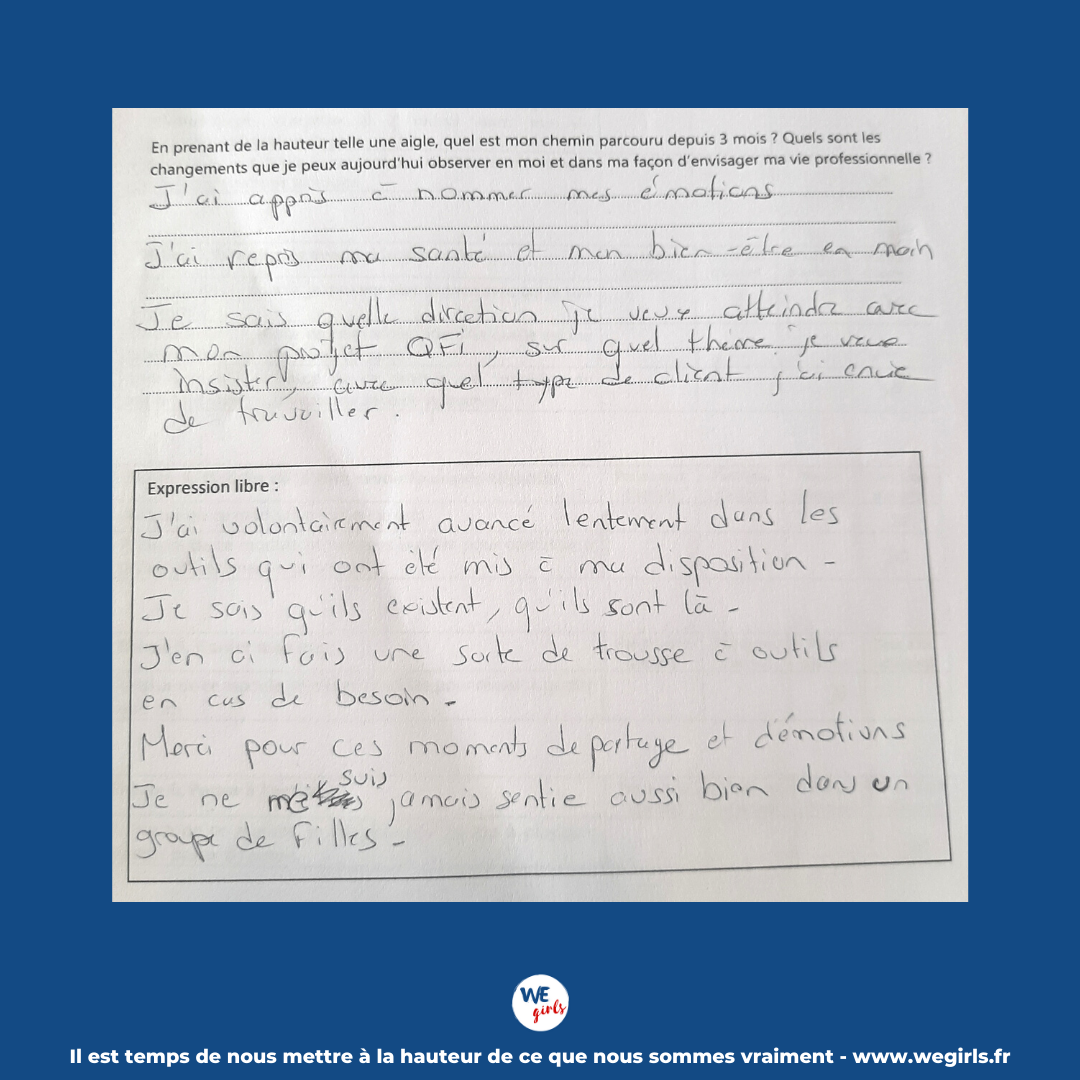 En prenant de la hauteur telle une aigle, quel est mon chemin parcouru depuis 3 mois ? Quels sont les
changements que je peux aujourd'hui observer en moi et dans ma façon d'envisager ma vie professionnelle ?
J'ai appris à nommer mes émotions
J'ai repris ma santé et mon bien-être en main
Je sais quelle direction je veux atteindre avec
mon projet QFI, sur quel thème je veux
insister, avec quel type de client j'ai envie
de travailler.
Expression libre :
J'ai volontairement avancé lentement dans les
outils qui ont été mis à ma disposition -
Je sais qu'ils existent, qu'ils sont là -
J'en ai fais une sorte de trousse à outils
en cas de besoin -
Merci pour ces moments de partage et d'émotions
Je ne me suis jamais sentie aussi bien dans un
groupe de filles -
WE
girls
Il est temps de nous mettre à la hauteur de ce que nous sommes vraiment - www.wegirls.fr